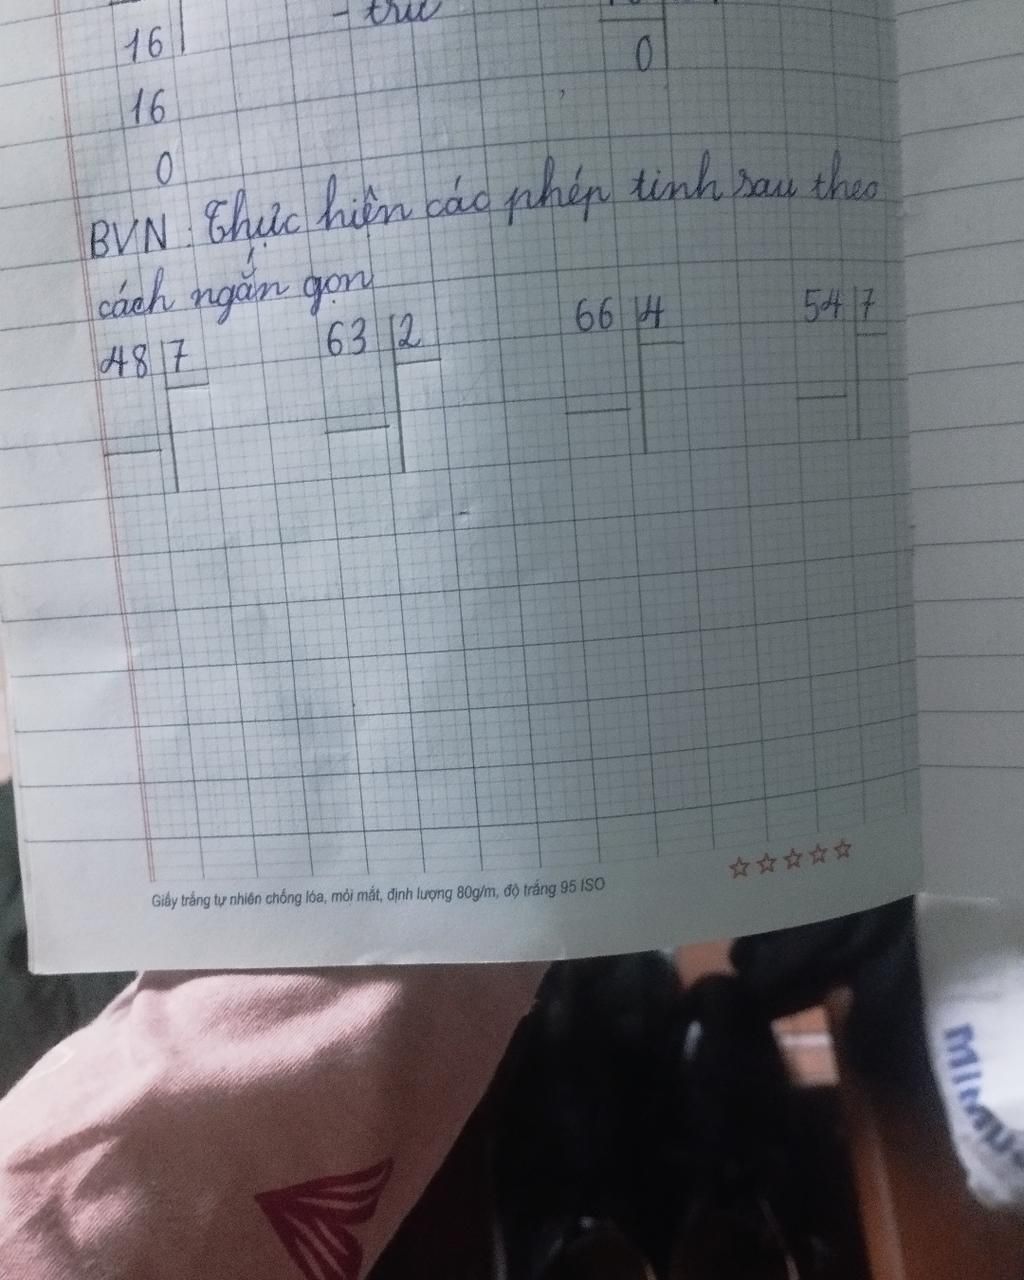 16
- trừ
0
16
0
BVN: Thực hiện các phép tính sau theo
cách ngắn gọn
48 7
63 2
66 4
54 7
Giấy trắng tự nhiên chống lóa, mỏi mắt, định lượng 80g/m, độ trắng 95 ISO